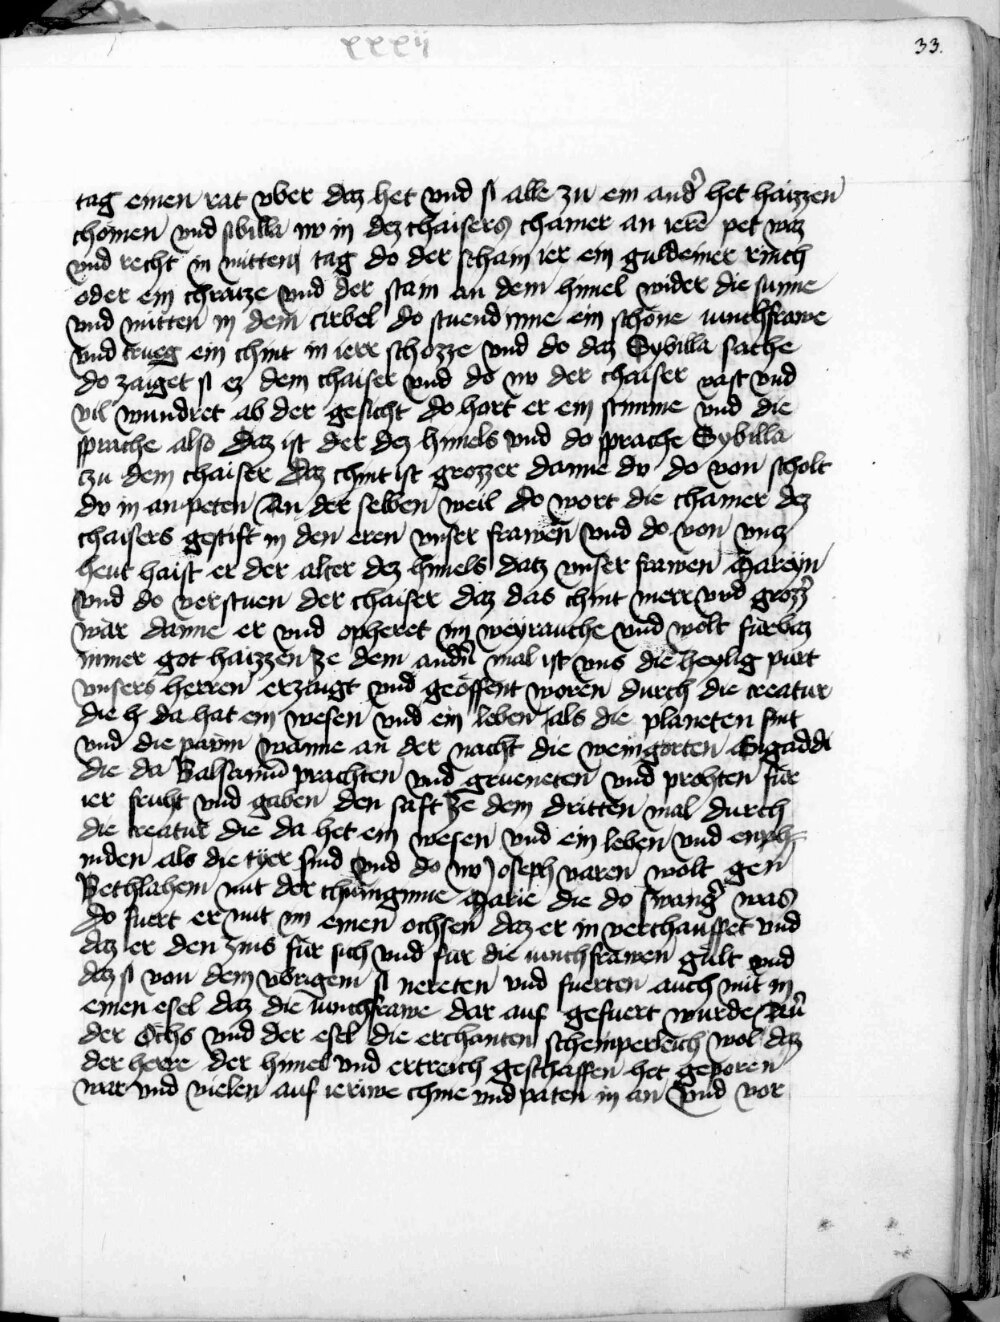 xxxij
33.
tag einen rat vber daz het vnd si alle zu ein and' het haizzen
chomen vnd sibilla nv in dez chaisers chamer an ierē pet waz
vnd recht in mittem tag do der schain ier ein guldeiner rinch
oder ein chraize vnd der stain an dem himel wider die sunne
vnd mitten in dem cirkel do stuend inne ein schone iunchfrawe
vnd trueg ein chint in ierr schozze vnd do daz Sybilla sache
do zaiget si ez dem chaiser vnd do nv der chaiser vast vnd
vil wundret ab der gesicht do hort er ein stimme vnd die
sprache also daz ist der dez himels vnd do sprache Sybilla
tzu dem chaiser daz chint ist grozzer danne dv do von scholt
dv in an peten An der selben weil do wort die chamer dez
chaisers gestift in den eren vnser frawen vnd do von vntz
heut haist er der alter dez himels datz vnser frawen Mareyn
vnd do verstuen der chaiser daz das chint merr vnd grozz'
wår danne er vnd opheret im weyrauche vnd wolt fürbaz
nimer got haizzen ze dem andn̄ mal ist vns die heylig purt
vnsers herren erzaigt vnd geöffent woren durch die creatur
die h da hat ein wesen vnd ein leben als die planeten sint
vnd die pawm wanne an der nacht die weingorten Engaddi
die da Balsamū prachten vnd grueneten vnd prohten für
ier fruht vnd gaben den saft ze dem dritten mal durch
die creatur die da het ein wesen vnd ein leben vnd enph=
inden als die tyer sind vnd do nv Joseph varen wolt gen
Bethlahem mit der chuniginne Marie die do swang' was
do fuert er mit im einen ochsen daz er in verchauffet vnd
daz er den zins für sich vnd für die iunchfrawen gült vnd
daz si von dem vbrigem si nereten vnd fuerten auch mit in
einen esel daz die iunchfrawe dar auf gefuert wurde Nū
der Ochs vnd der esel die erchanten schemperleich wol daz
der herre der himel vnd ertreich geschaffen het geporen
war vnd vielen auf ieriwe chnie vnd paten in an Vnd vor